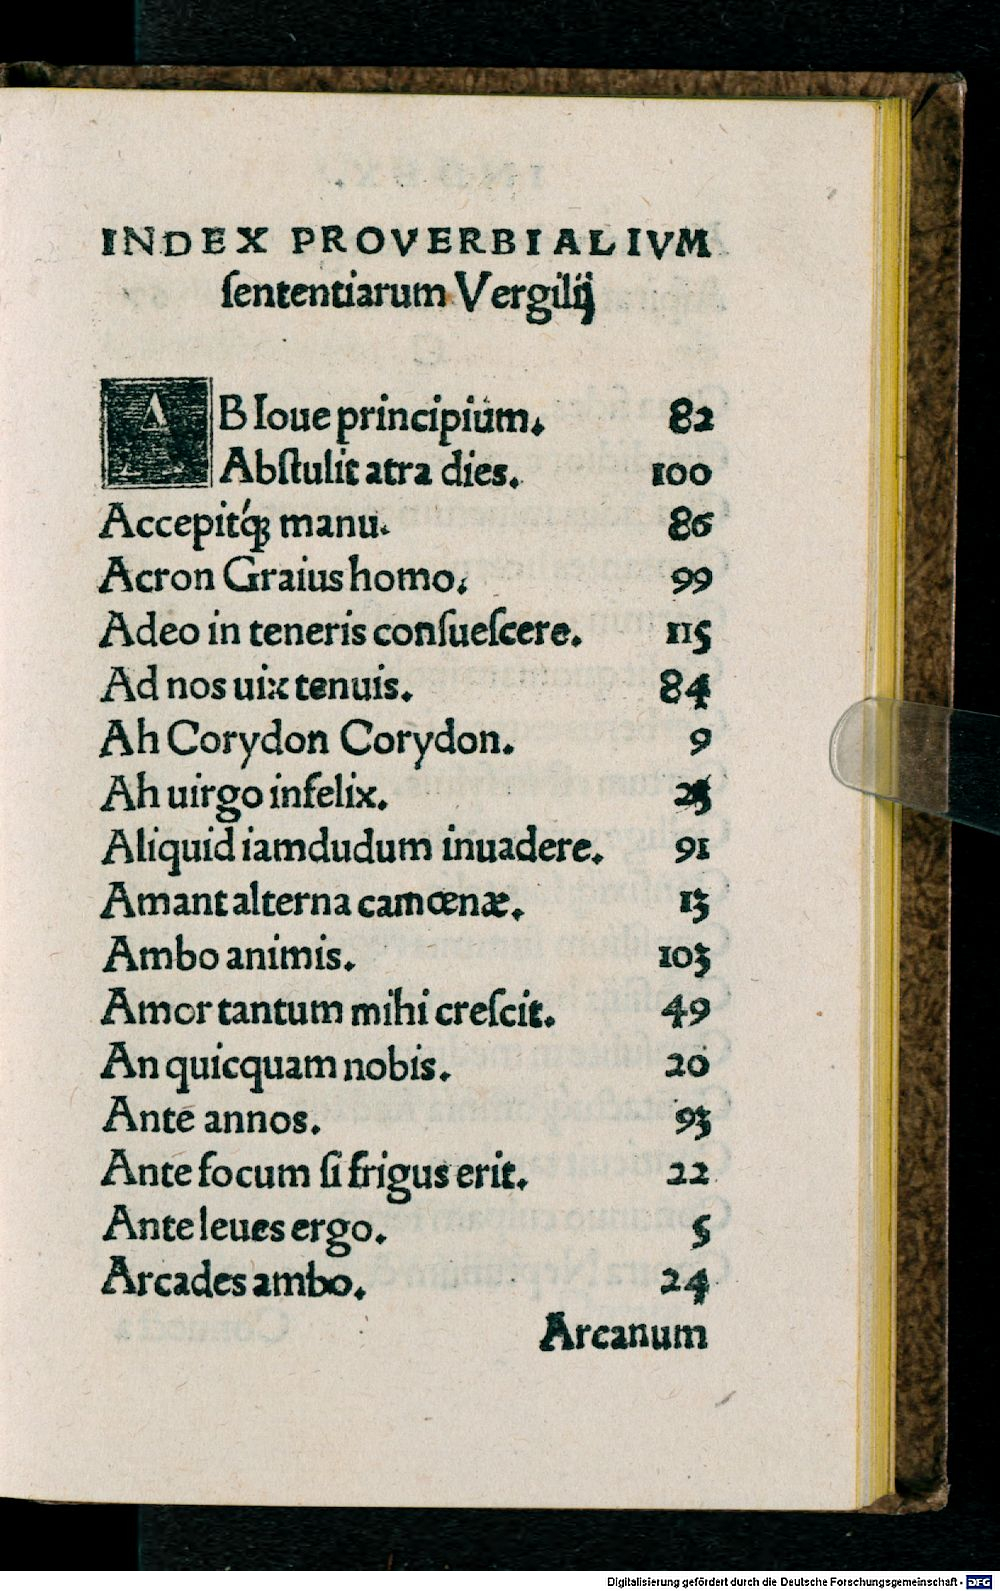 INDEX PROVERBIALIVM
ſententiarum Vergilij
AB Ioue principium. 82
Abſtulit atra dies. 100
Accepitq́ꝫ manu. 86
Acron Graius homo. 99
Adeo in teneris conſueſcere. 115
Ad nos uix tenuis. 84
Ah Corydon Corydon. 9
Ah uirgo infelix.
Aliquid iamdudum inuadere. 91
Amant alterna camœnæ. 13
Ambo animis. 103
Amor tantum mihi creſcit. 49
An quicquam nobis. 20
Ante annos. 93
Ante focum ſi frigus erit. 22
Ante leues ergo. 5
Arcades ambo. 24
Arcanum
Digitalisierung gefördert durch die Deutsche Forschungsgemeinschaft - DFG